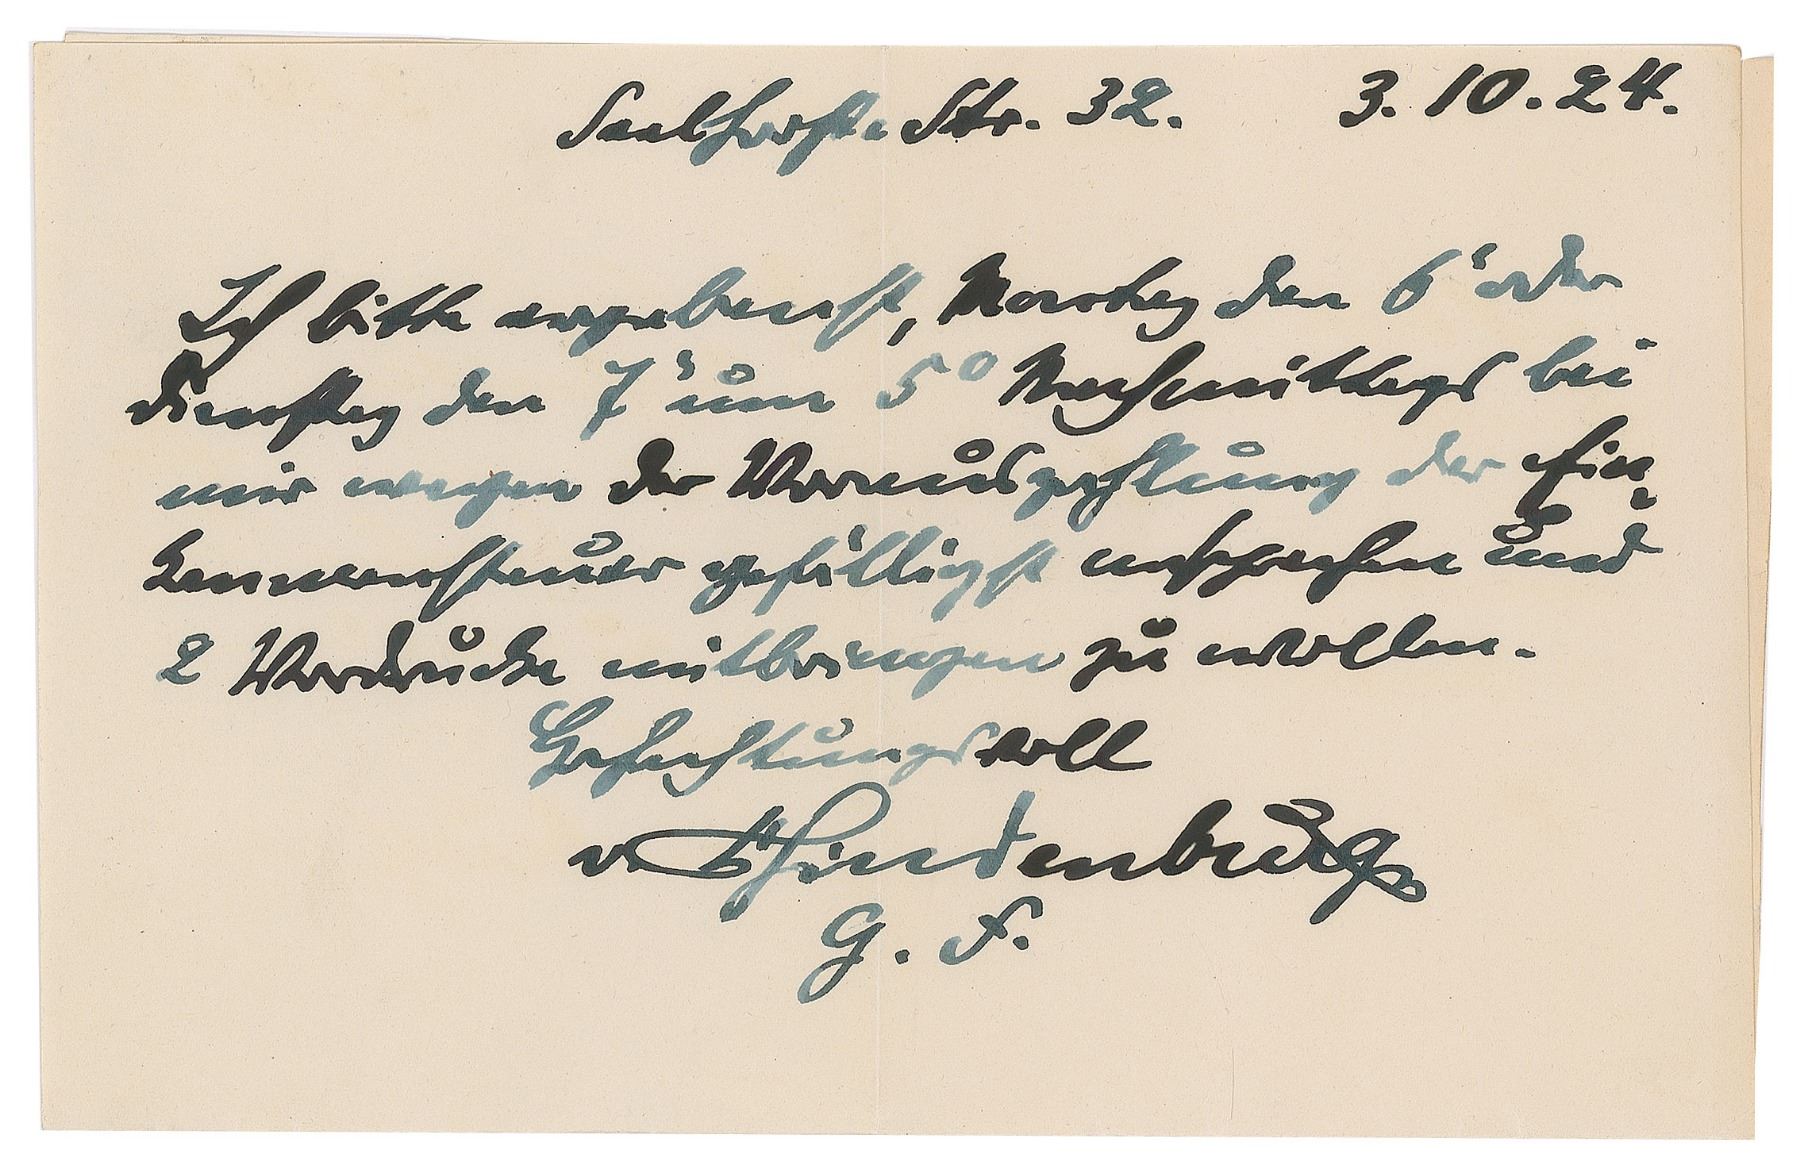 Seelhorst-Str. 32. 3. 10. 24.
Ich bitte ergebenst, Montag den 6' oder
Dienstag den 7' um 5⁰ Nachmittags bei
mir wegen der Vorauszahlung der Ein-
kommensteuer gefälligst vorsprechen und
2 Vordrucke mitbringen zu wollen.
Hochachtungsvoll
v. Hindenburg
G. F.